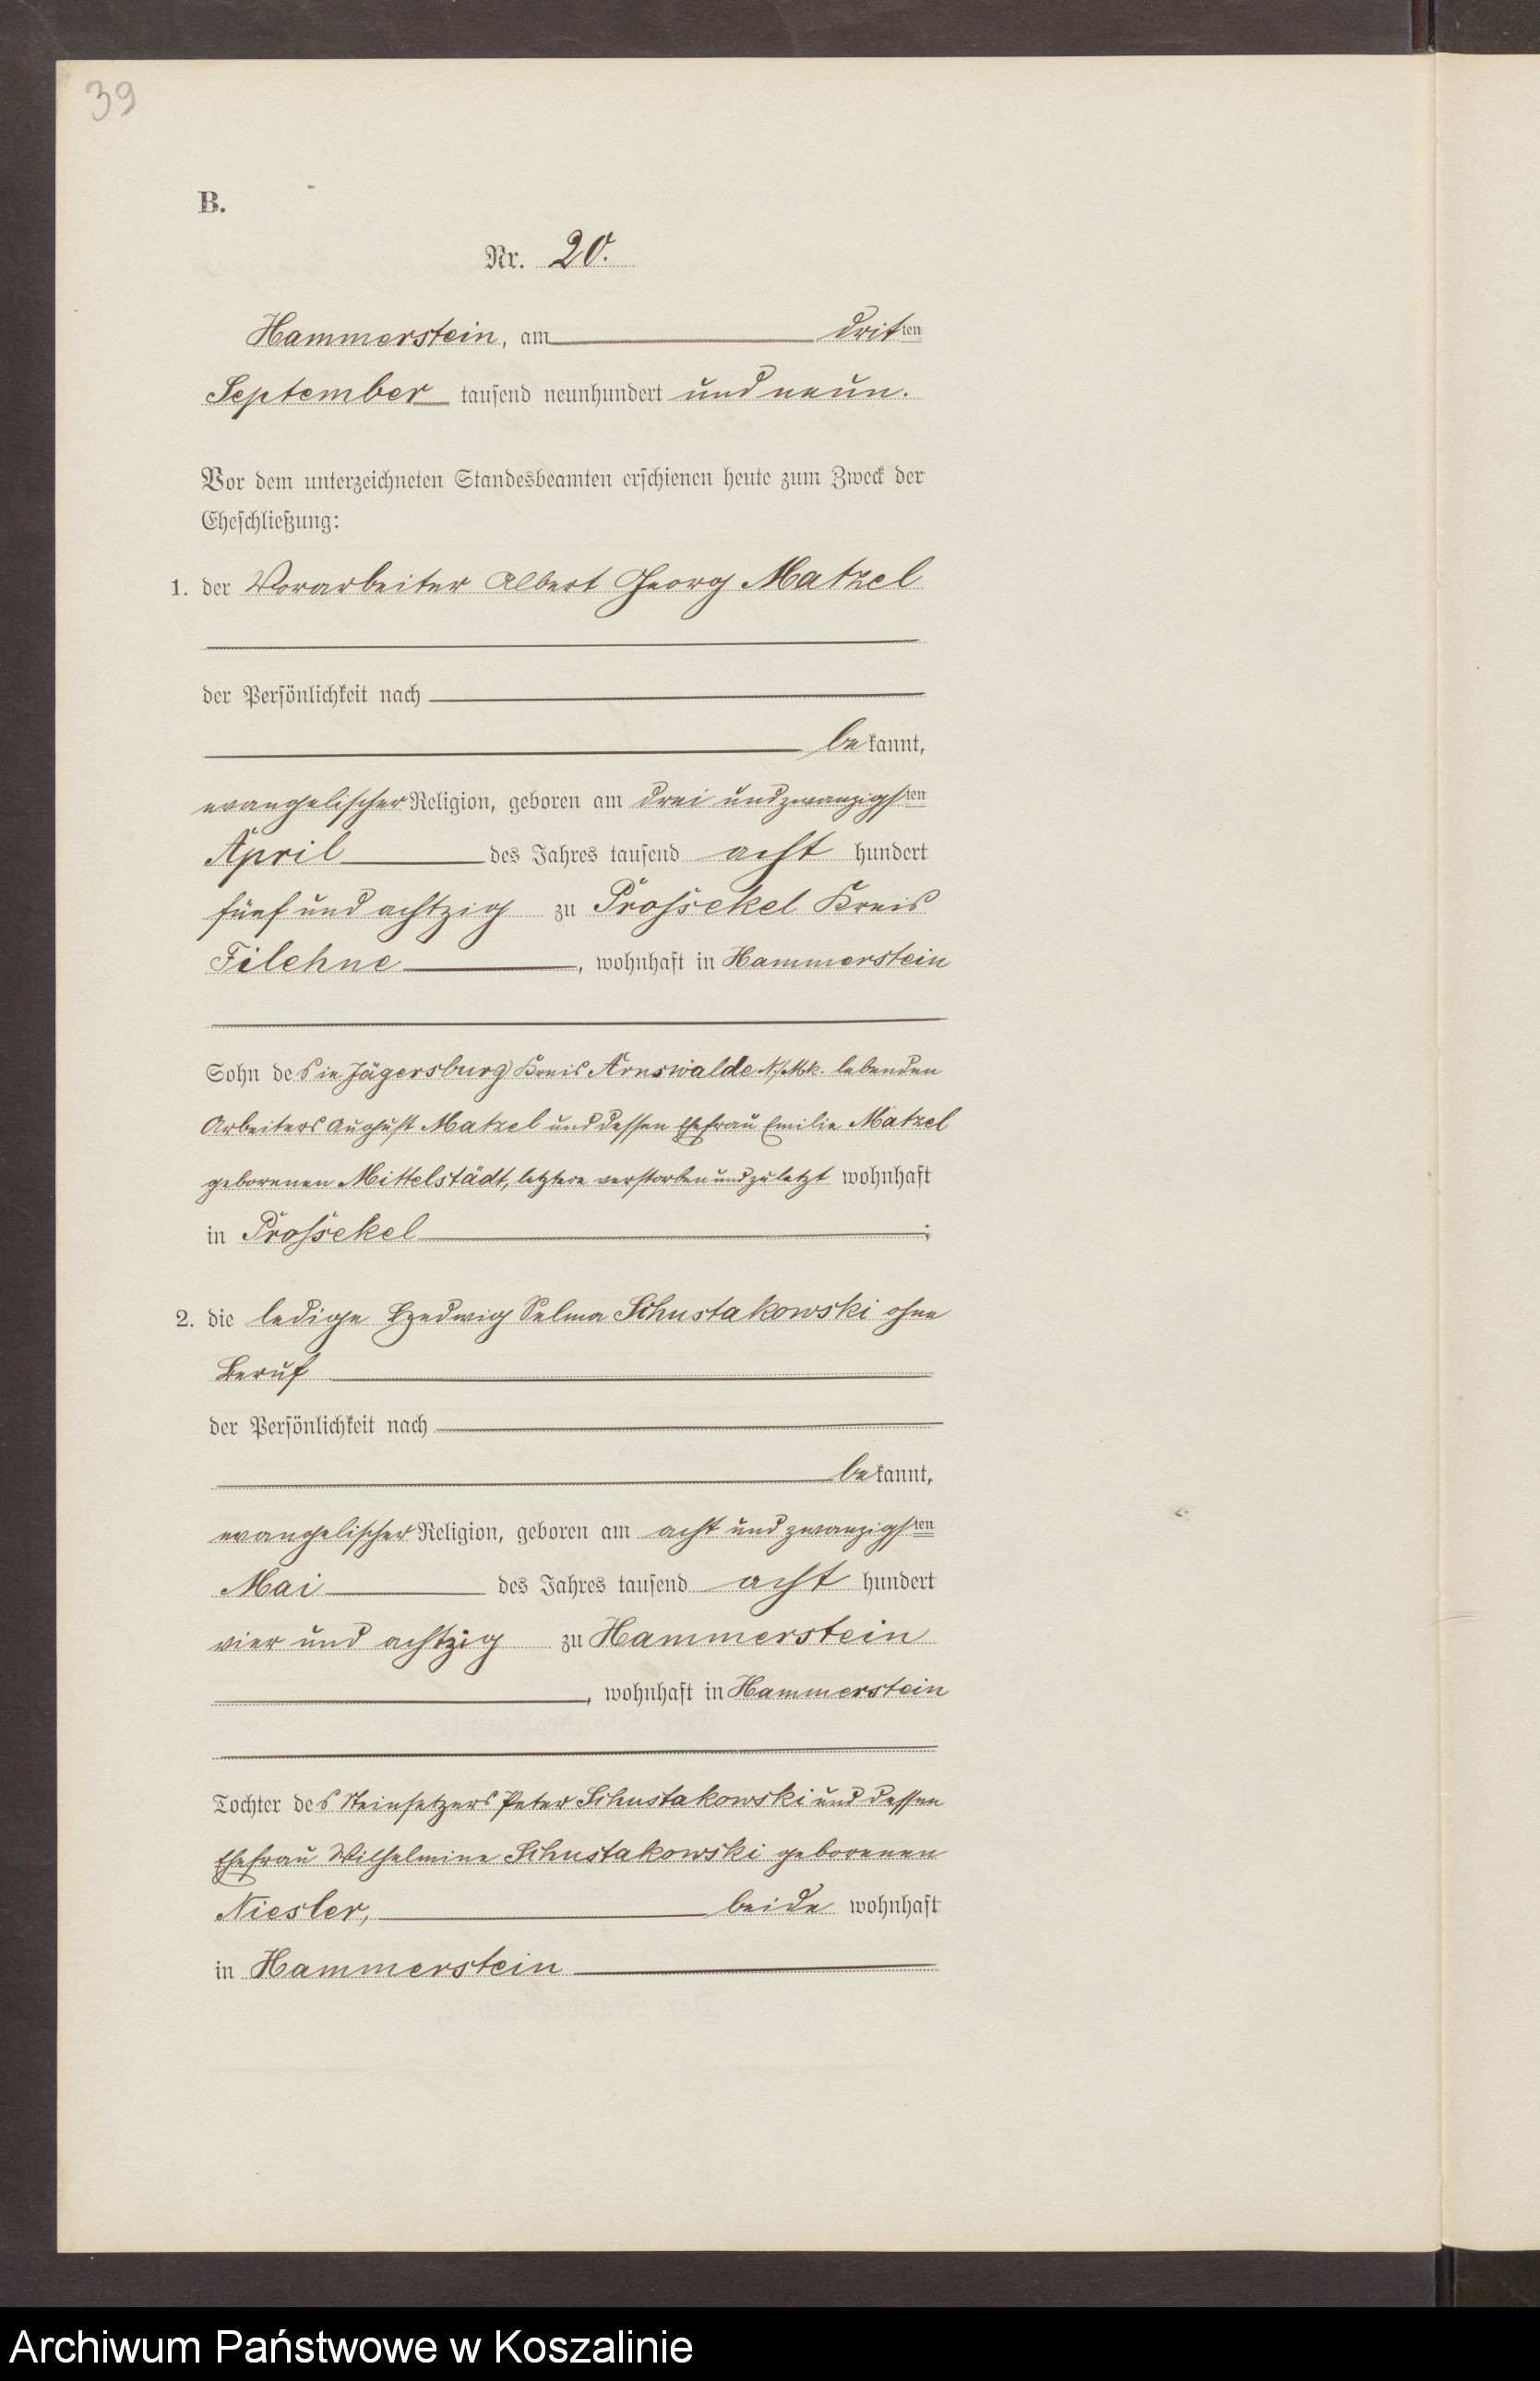 39
B.
Nr. 20.
Hammerstein, am dritten
September tausend neunhundert und neun.
Vor dem unterzeichneten Standesbeamten erschienen heute zum Zweck der
Eheschließung:
1. der Vorarbeiter Albert Georg Matzel
der Persönlichkeit nach
bekannt,
evangelischer Religion, geboren am drei und zwanzigsten
April des Jahres tausend acht hundert
fünf und achtzig zu Prossekel Kreis
Filehne, wohnhaft in Hammerstein
Sohn des in Jägersburg Kreis Arnswalde N/Mk. lebenden
Arbeiters August Matzel und dessen Ehefrau Emilie Matzel
geborenen Mittelstädt, letztere verstorben und zuletzt wohnhaft
in Prossekel;
2. die ledige Hedwig Selma Schustakowski ohne
Beruf
der Persönlichkeit nach
bekannt,
evangelischer Religion, geboren am acht und zwanzigsten
Mai des Jahres tausend acht hundert
vier und achtzig zu Hammerstein
, wohnhaft in Hammerstein
Tochter des Steinsetzers Peter Schustakowski und dessen
Ehefrau Wilhelmine Schustakowski geborenen
Niesler, beide wohnhaft
in Hammerstein
Archiwum Państwowe w Koszalinie